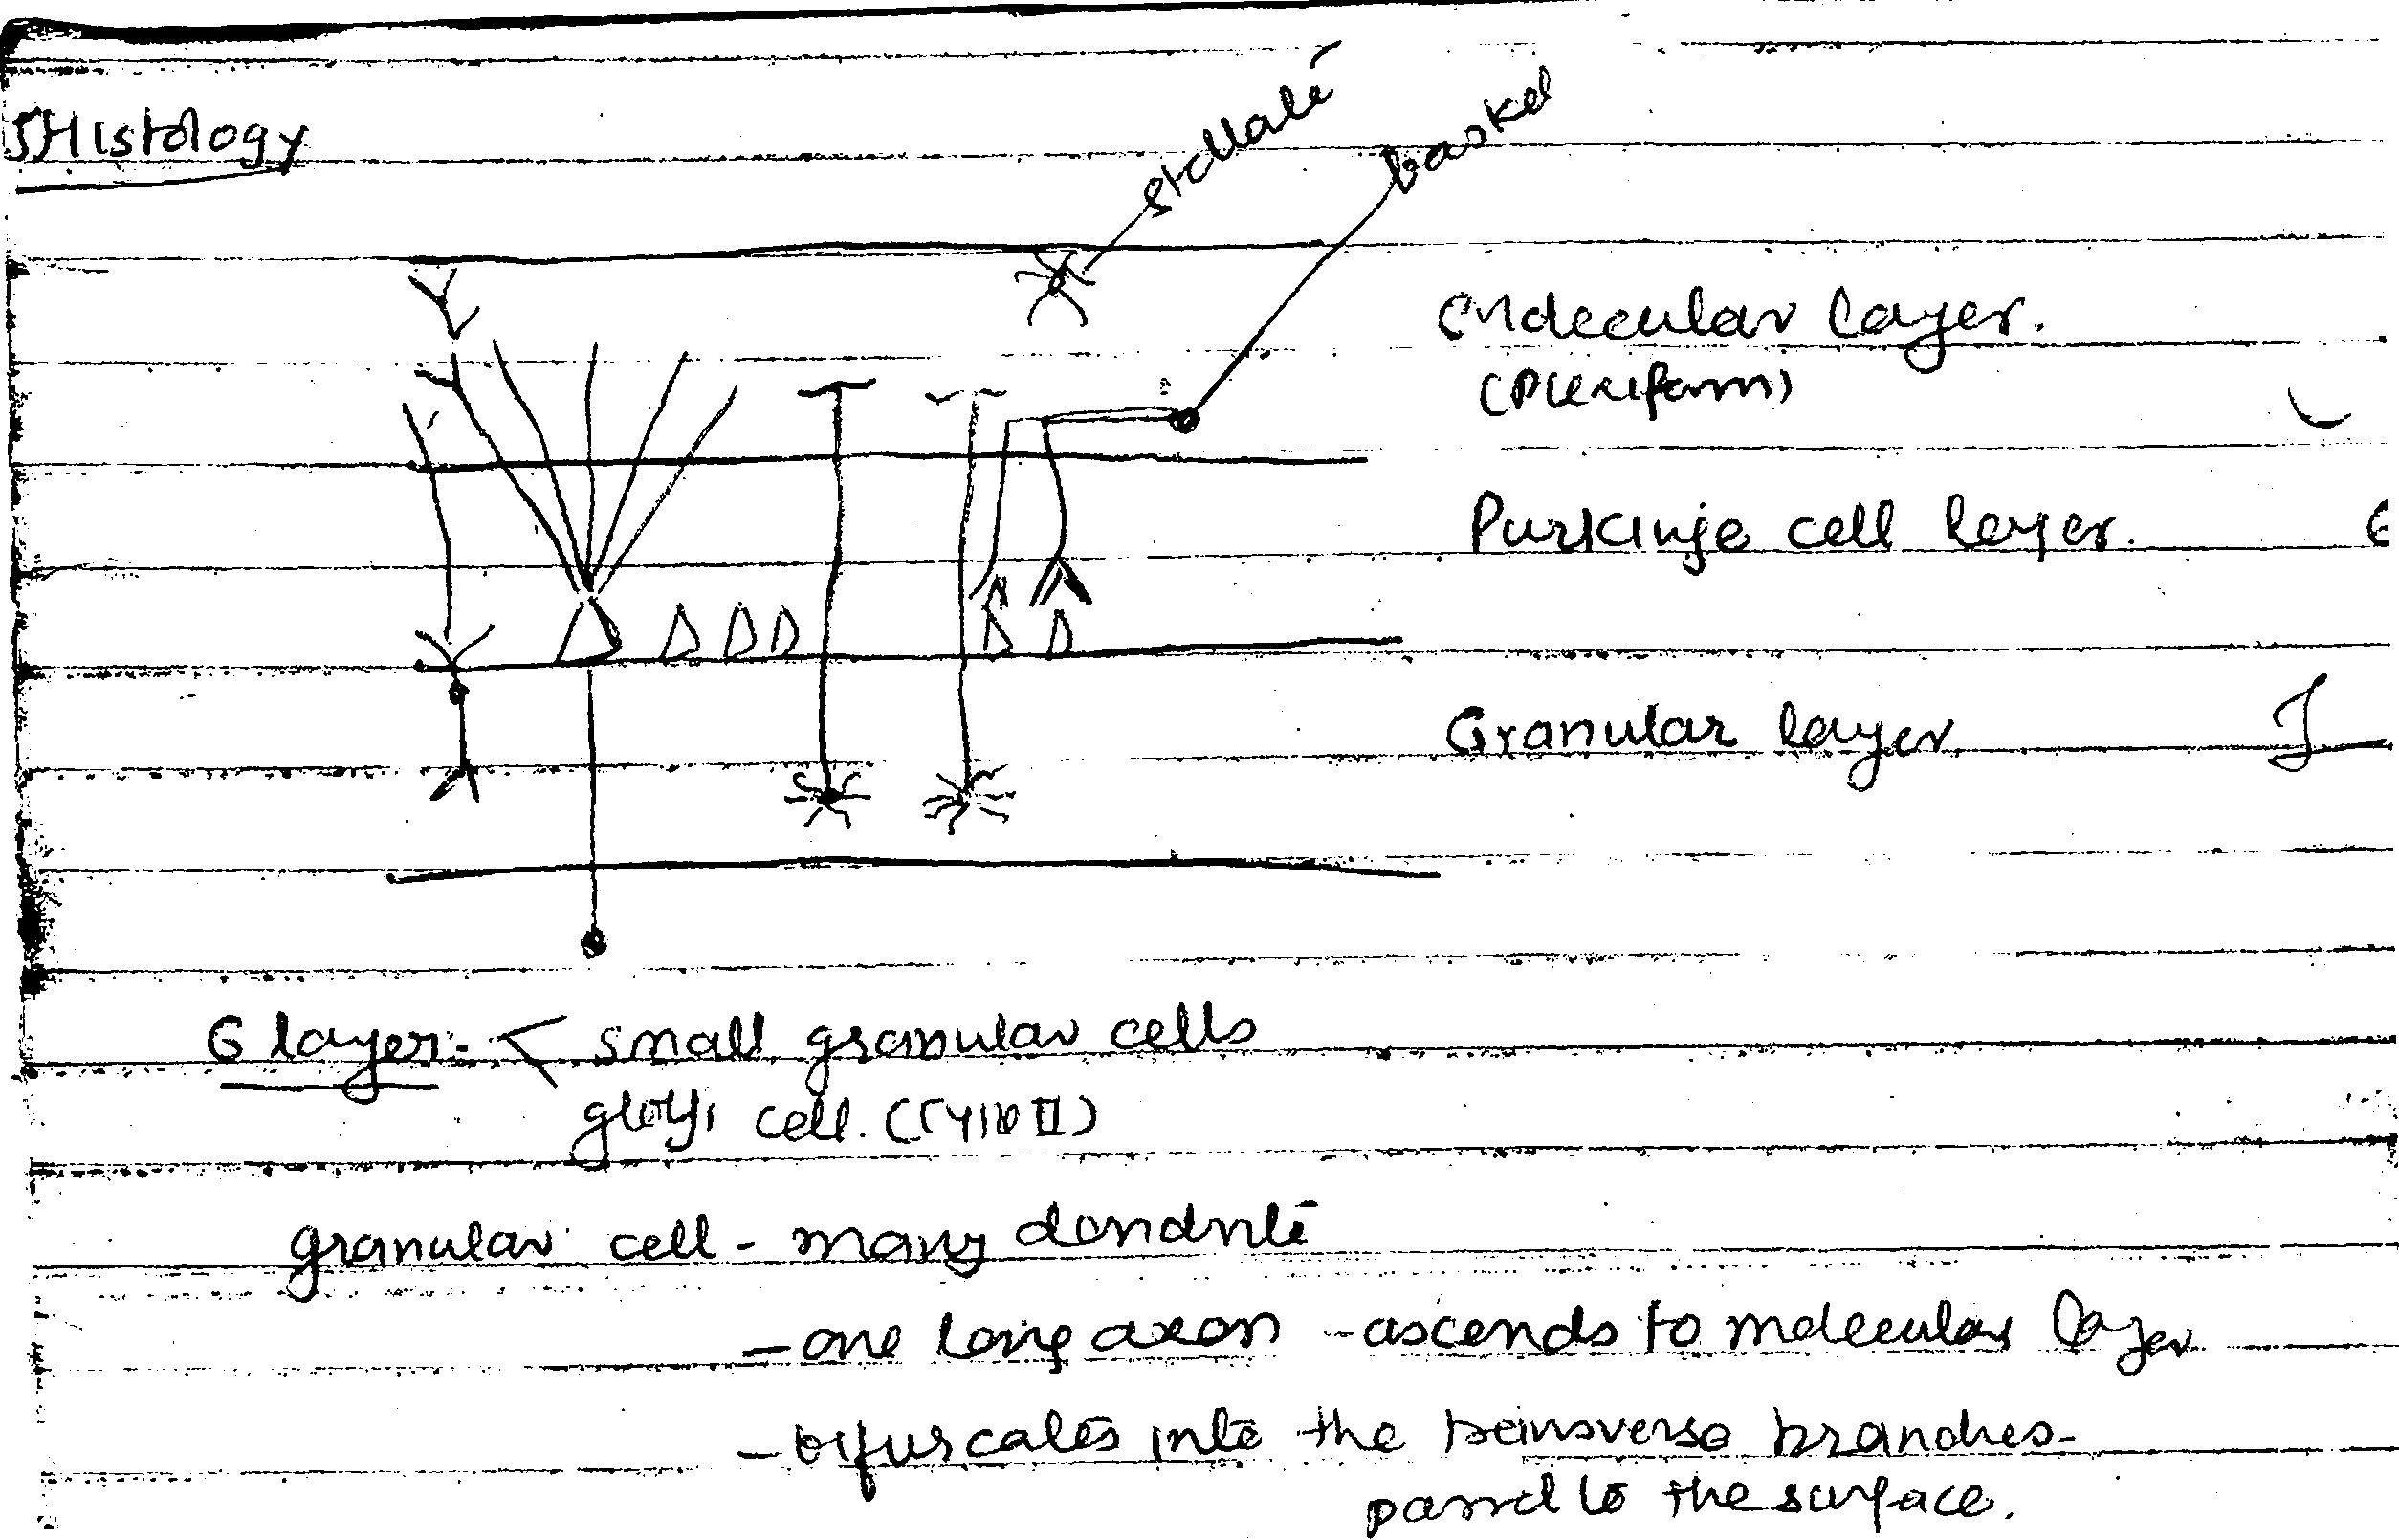 Histology
stellate
basket
Molecular layer.
(Plexiform)
Purkinje cell layer.
Granular layer
G layer - < small granular cells
golgi cell. (Type II)
granular cell - many dendrite
- one long axon - ascends to molecular layer
- bifurcates into the transverse branches -
parrel to the surface.